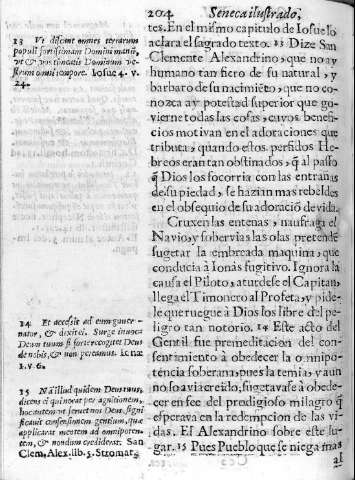 204 Seneca ilustrado,
tes. En el mismo capitulo de Iosue lo
aclara el sagrado texto. 13 Dize San
Clemente Alexandrino, que no ay
humano tan fiero de su natural, y
barbaro de su nacimiẽto, que no co
nozca ay potestad superior que go
uierne todas las cosas, cuyos benefi
cios motivan en el adoraciones que
tributa, quando estos perfidos He
breos eran tan obstinados, q̃ al passo
q̃ Dios los socorria con las entrañas
de su piedad, se hazian mas rebeldes
en el obsequio de su adoració de vida.
Cruxen las entenas, naufraga el
Navio, y sobervias las olas pretende
sugetar la embreada maquina, que
conducia à Ionàs fugitivo. Ignora la
causa el Piloto, aturdese el Capitan,
llega el Timonero al Profeta, y pide
le que ruegue à Dios los libre del pe
ligro tan notorio. 14 Este acto del
Gentil fue premeditacion del con-
sentimiento à obedecer la omnipo
tencia soberana, pues la temia, y aun
no lo avia creido, sugetavase à obede
cer en fee del prodigioso milagro q̃
esperava en la redempcion de las vi
das. El Alexandrino sobre este lu-
gar. 15 Pues Pueblo que se niega mas
al
13 Vt discant omnes terrarum
populi fortissimam Domini manũ,
vt & vos timeatis Dominum ve
strum omni tempore. Iosue 4. v.
24.
14 Et accessit ad eum guver-
nator, & dixit ei. Surge invoca
Deum tuum si forte recogitet Deus
de nobis, & non pereamus. Ionæ
1. v. 6.
15 Nã illud quidem Deus unus,
dicens ei qui norat per agnitionem,
hoc autem ut servet nos Deus, signi
ficavit consensionem gentium, quæ
applicarat mentem ad omnipoten-
tem, & nondum crediderat. San
Clem, Alex. lib. 5. Stromat.